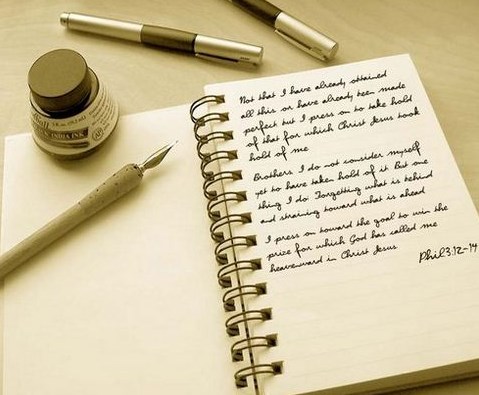 INDIA INK
Not that I have already attained
all this or have already teen made
perfect but I press on to take hold
of that for which Christ Jesus took
hold of me
Brothers I do not consider myself
yet to have taken hold of it But one
thing I do Forgetting what is behind
and straining toward what is ahead
I press on toward the goal to win the
prize for which God has called me
heavenward in Christ Jesus
Phil 3:12-14